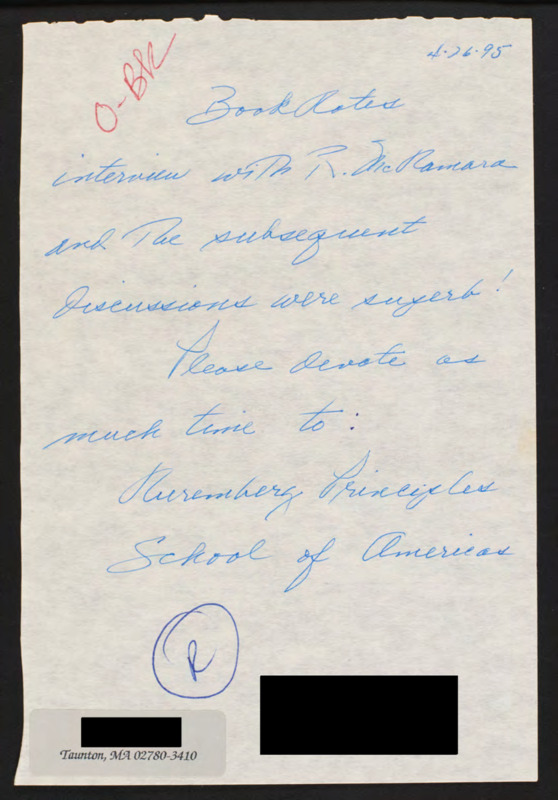 O-BK
4-26-95
BookNotes
interview with R. McNamara
and The subsequent
Discussions were superb!
Please devote as
much time to:
Nuremberg Principles
School of Americas
R
Taunton, MA 02780-3410